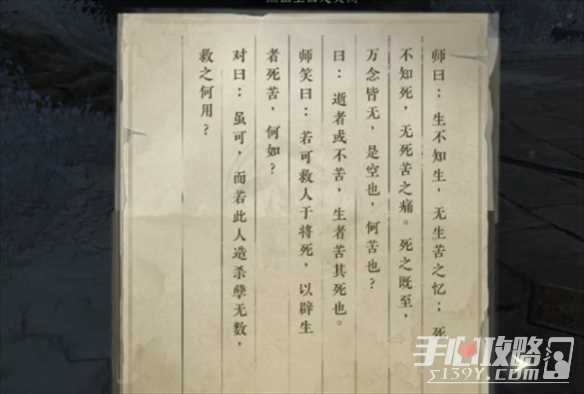 师曰：生不知生，无生苦之忆；死
不知死，无死苦之痛。死之既至，
万念皆无，是空也，何苦也？
曰：逝者或不苦，生者苦其死也。
师笑曰：若可救人于将死，以辟生
者死苦，何如？
对曰：虽可，而若此人造杀孽无数，
救之何用？
手心攻略
y139y.com